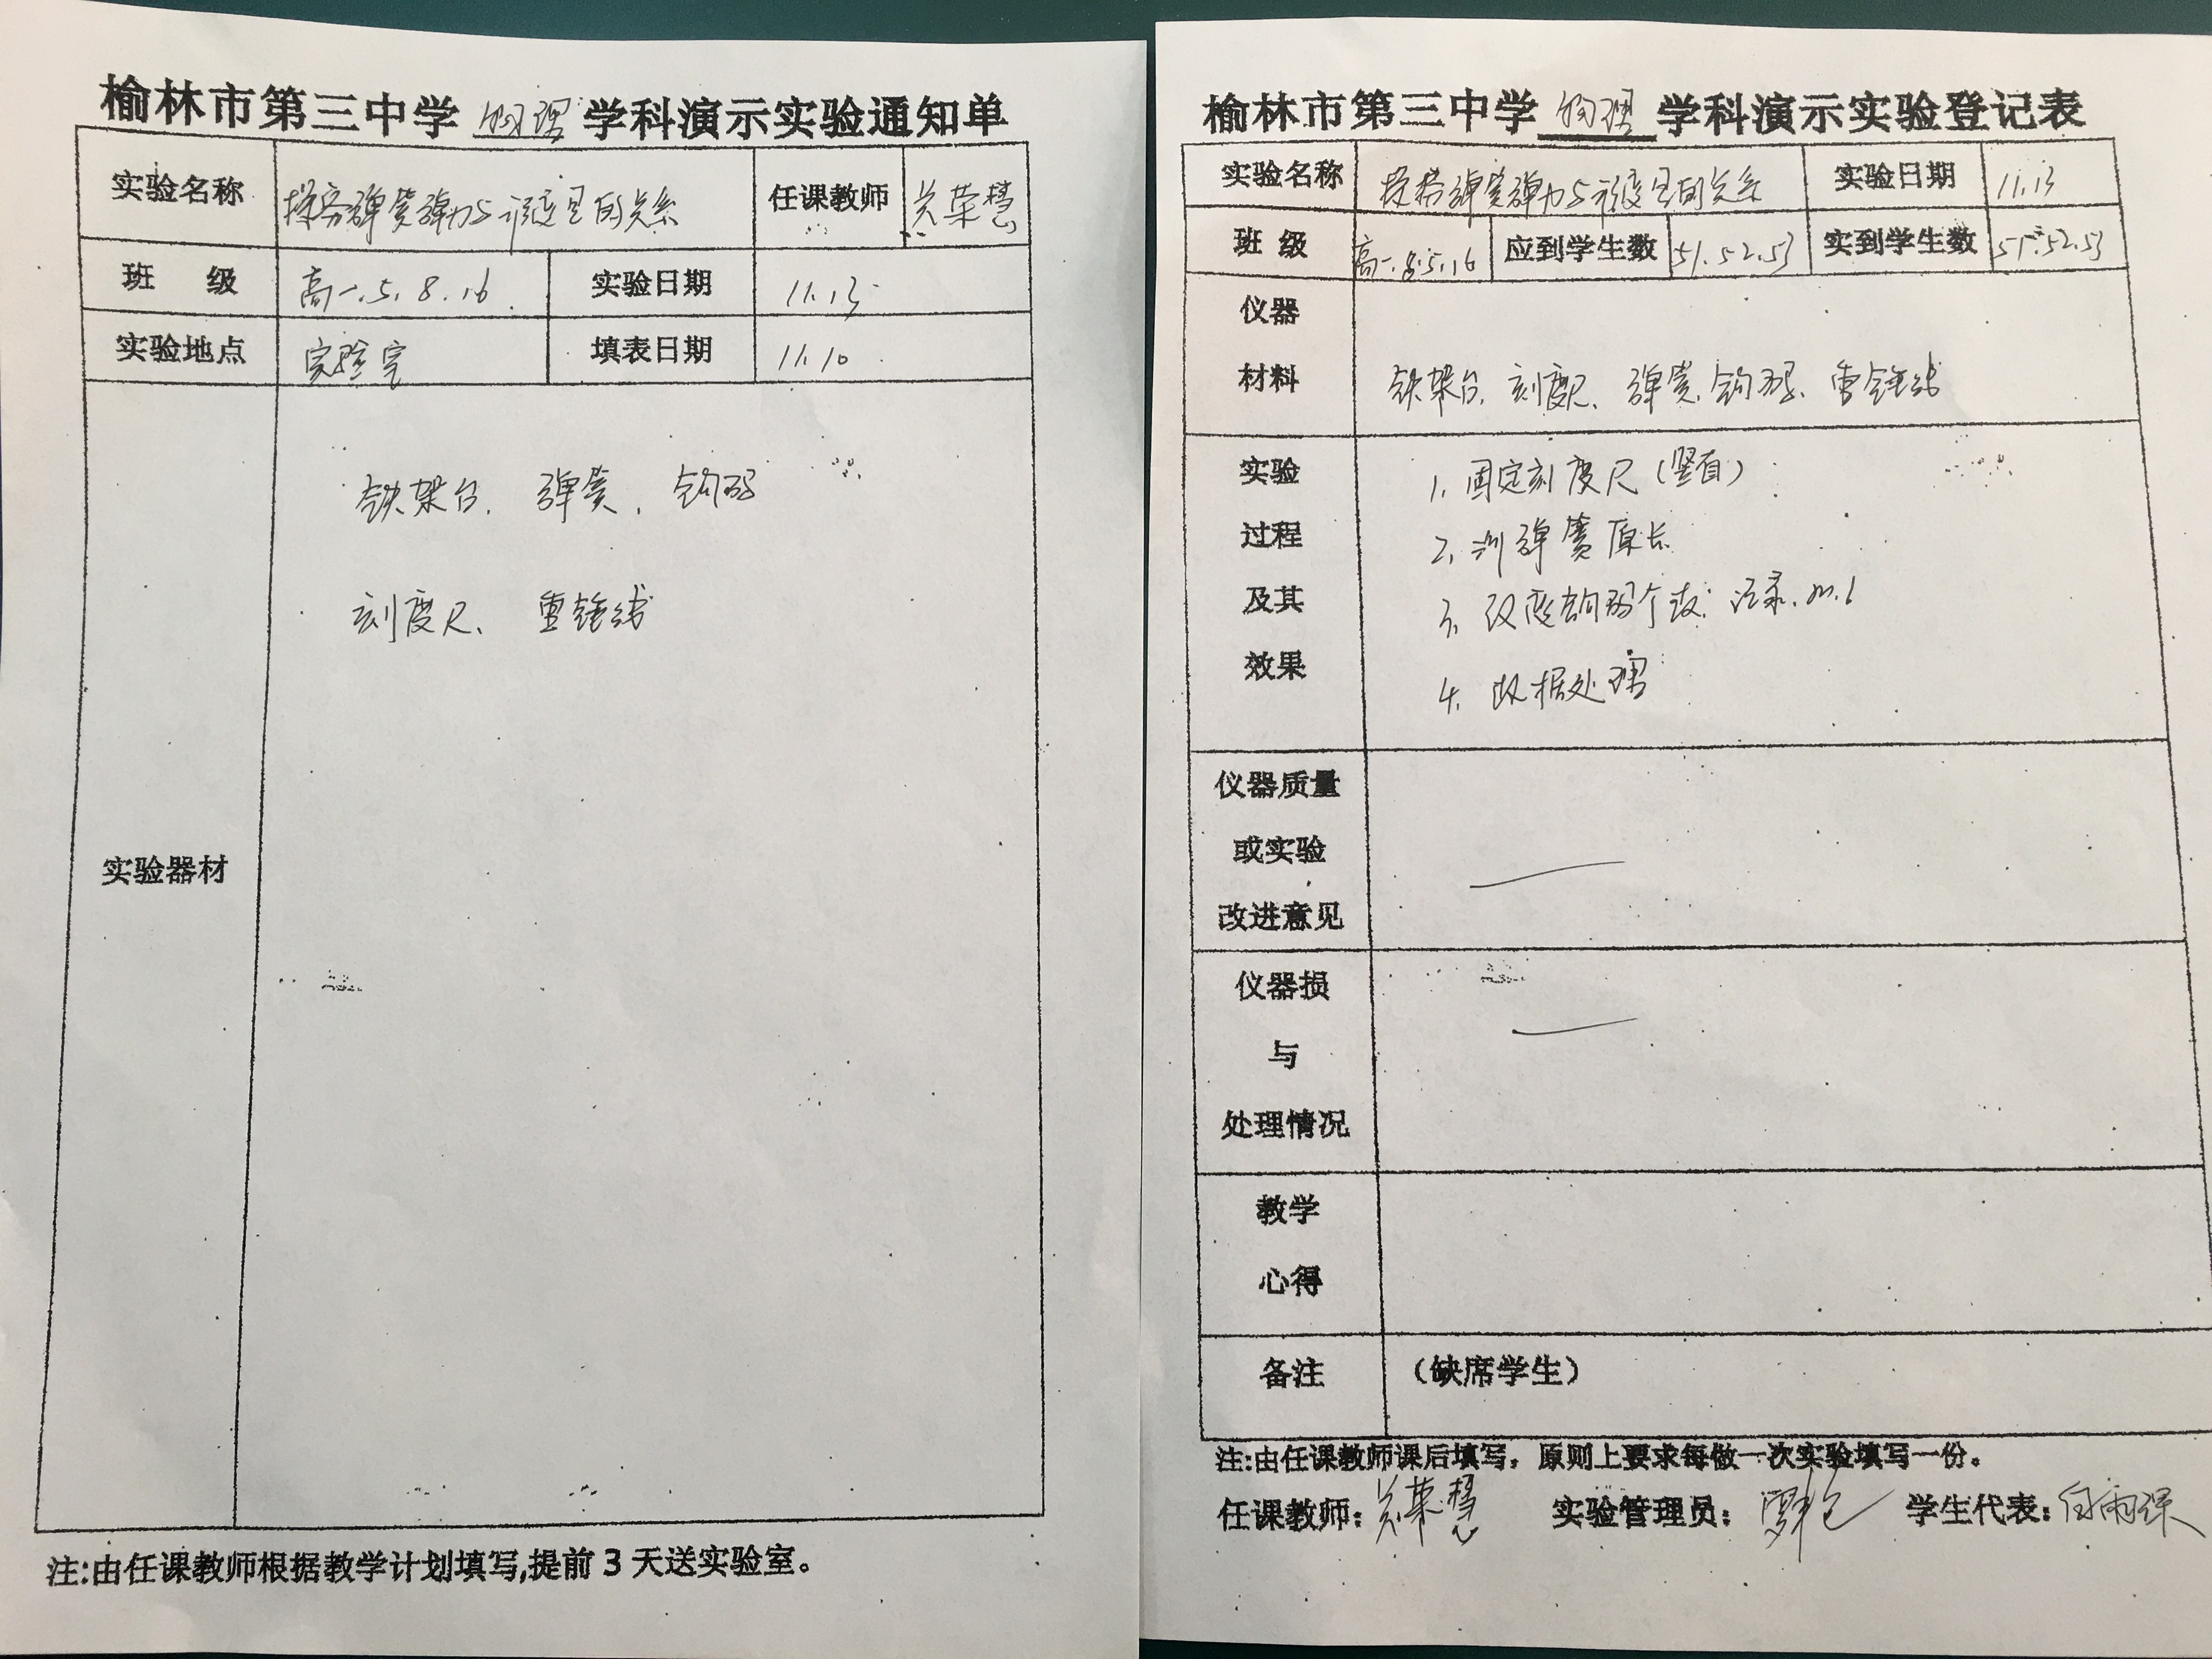 榆林市第三中学 物理 学科演示实验通知单
实验名称 探究弹簧弹力与形变量的关系 任课教师 荣慧
班 级 高一.5.8.16 实验日期 11.13
实验地点 实验室 填表日期 11.10
实验器材
铁架台、弹簧、钩码
刻度尺、重锤线
注:由任课教师根据教学计划填写,提前3天送实验室。
榆林市第三中学 物理 学科演示实验登记表
实验名称 探究弹簧弹力与形变量的关系 实验日期 11.13
班 级 高一.8.5.16 应到学生数 51.52.53 实到学生数 51.52.53
仪器
材料 铁架台、刻度尺、弹簧、钩码、重锤线
实验 1. 固定刻度尺(竖直)
过程 2. 测弹簧原长
及其 3. 改变钩码个数 记录.m.l
效果 4. 数据处理
仪器质量
或实验
改进意见
仪器损
与
处理情况
教学
心得
备注 (缺席学生)
注:由任课教师课后填写,原则上要求每做一次实验填写一份。
任课教师: 荣慧 实验管理员: 学生代表: